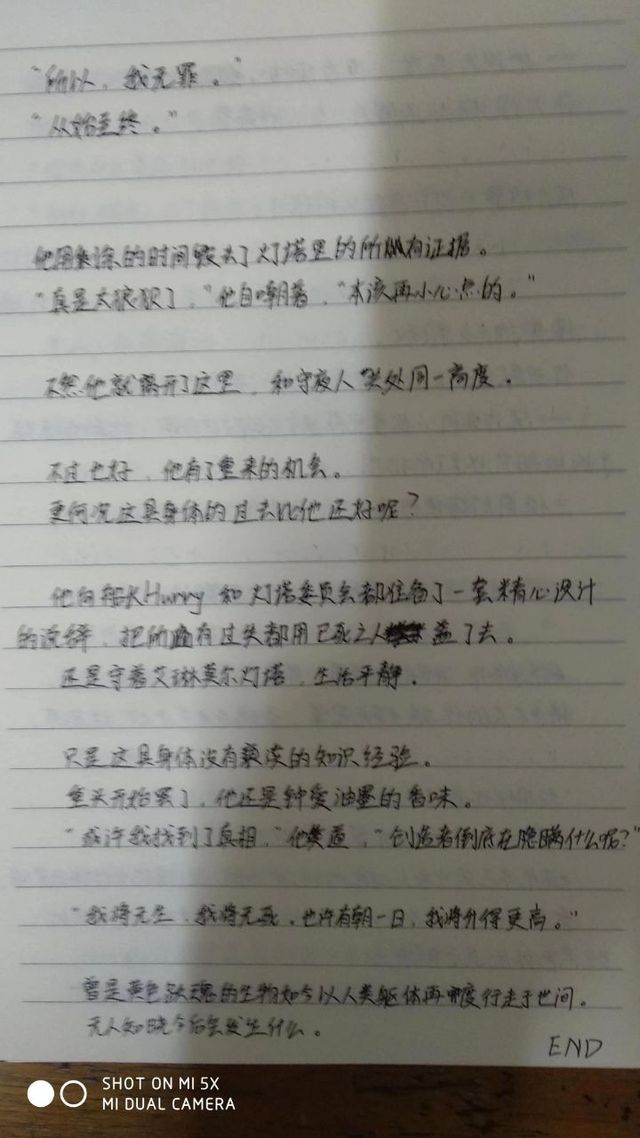 “所以，我无罪。”
“从始至终。”
他用剩余的时间毁去了灯塔里的所有证据。
“真是太狼狈了，”他自嘲着，“本该再小心点的。”
不然他就离开了这里，和守夜人类处同一高度。
不过也好，他有了重来的机会。
更何况这具身体的过去比他还好呢？
他向 Hurry 和灯塔委员会都准备了一套精心设计
的说辞，把所有过失都用已死之人盖了去。
还是守着艾琳莫尔灯塔，生活平静。
只是这具身体没有额读的知识经验。
重头开始罢了，他还是钟爱油墨的香味。
“或许我找到了真相，”他笑道，“创造者倒底在隐瞒什么呢？”
“我将无生，我将无死。也许有朝一日，我将升得更高。”
曾是黄色的生物如今以人类躯体再度行走于世间。
无人知晓今后会发生什么。
END
SHOT ON MI 5X
MI DUAL CAMERA